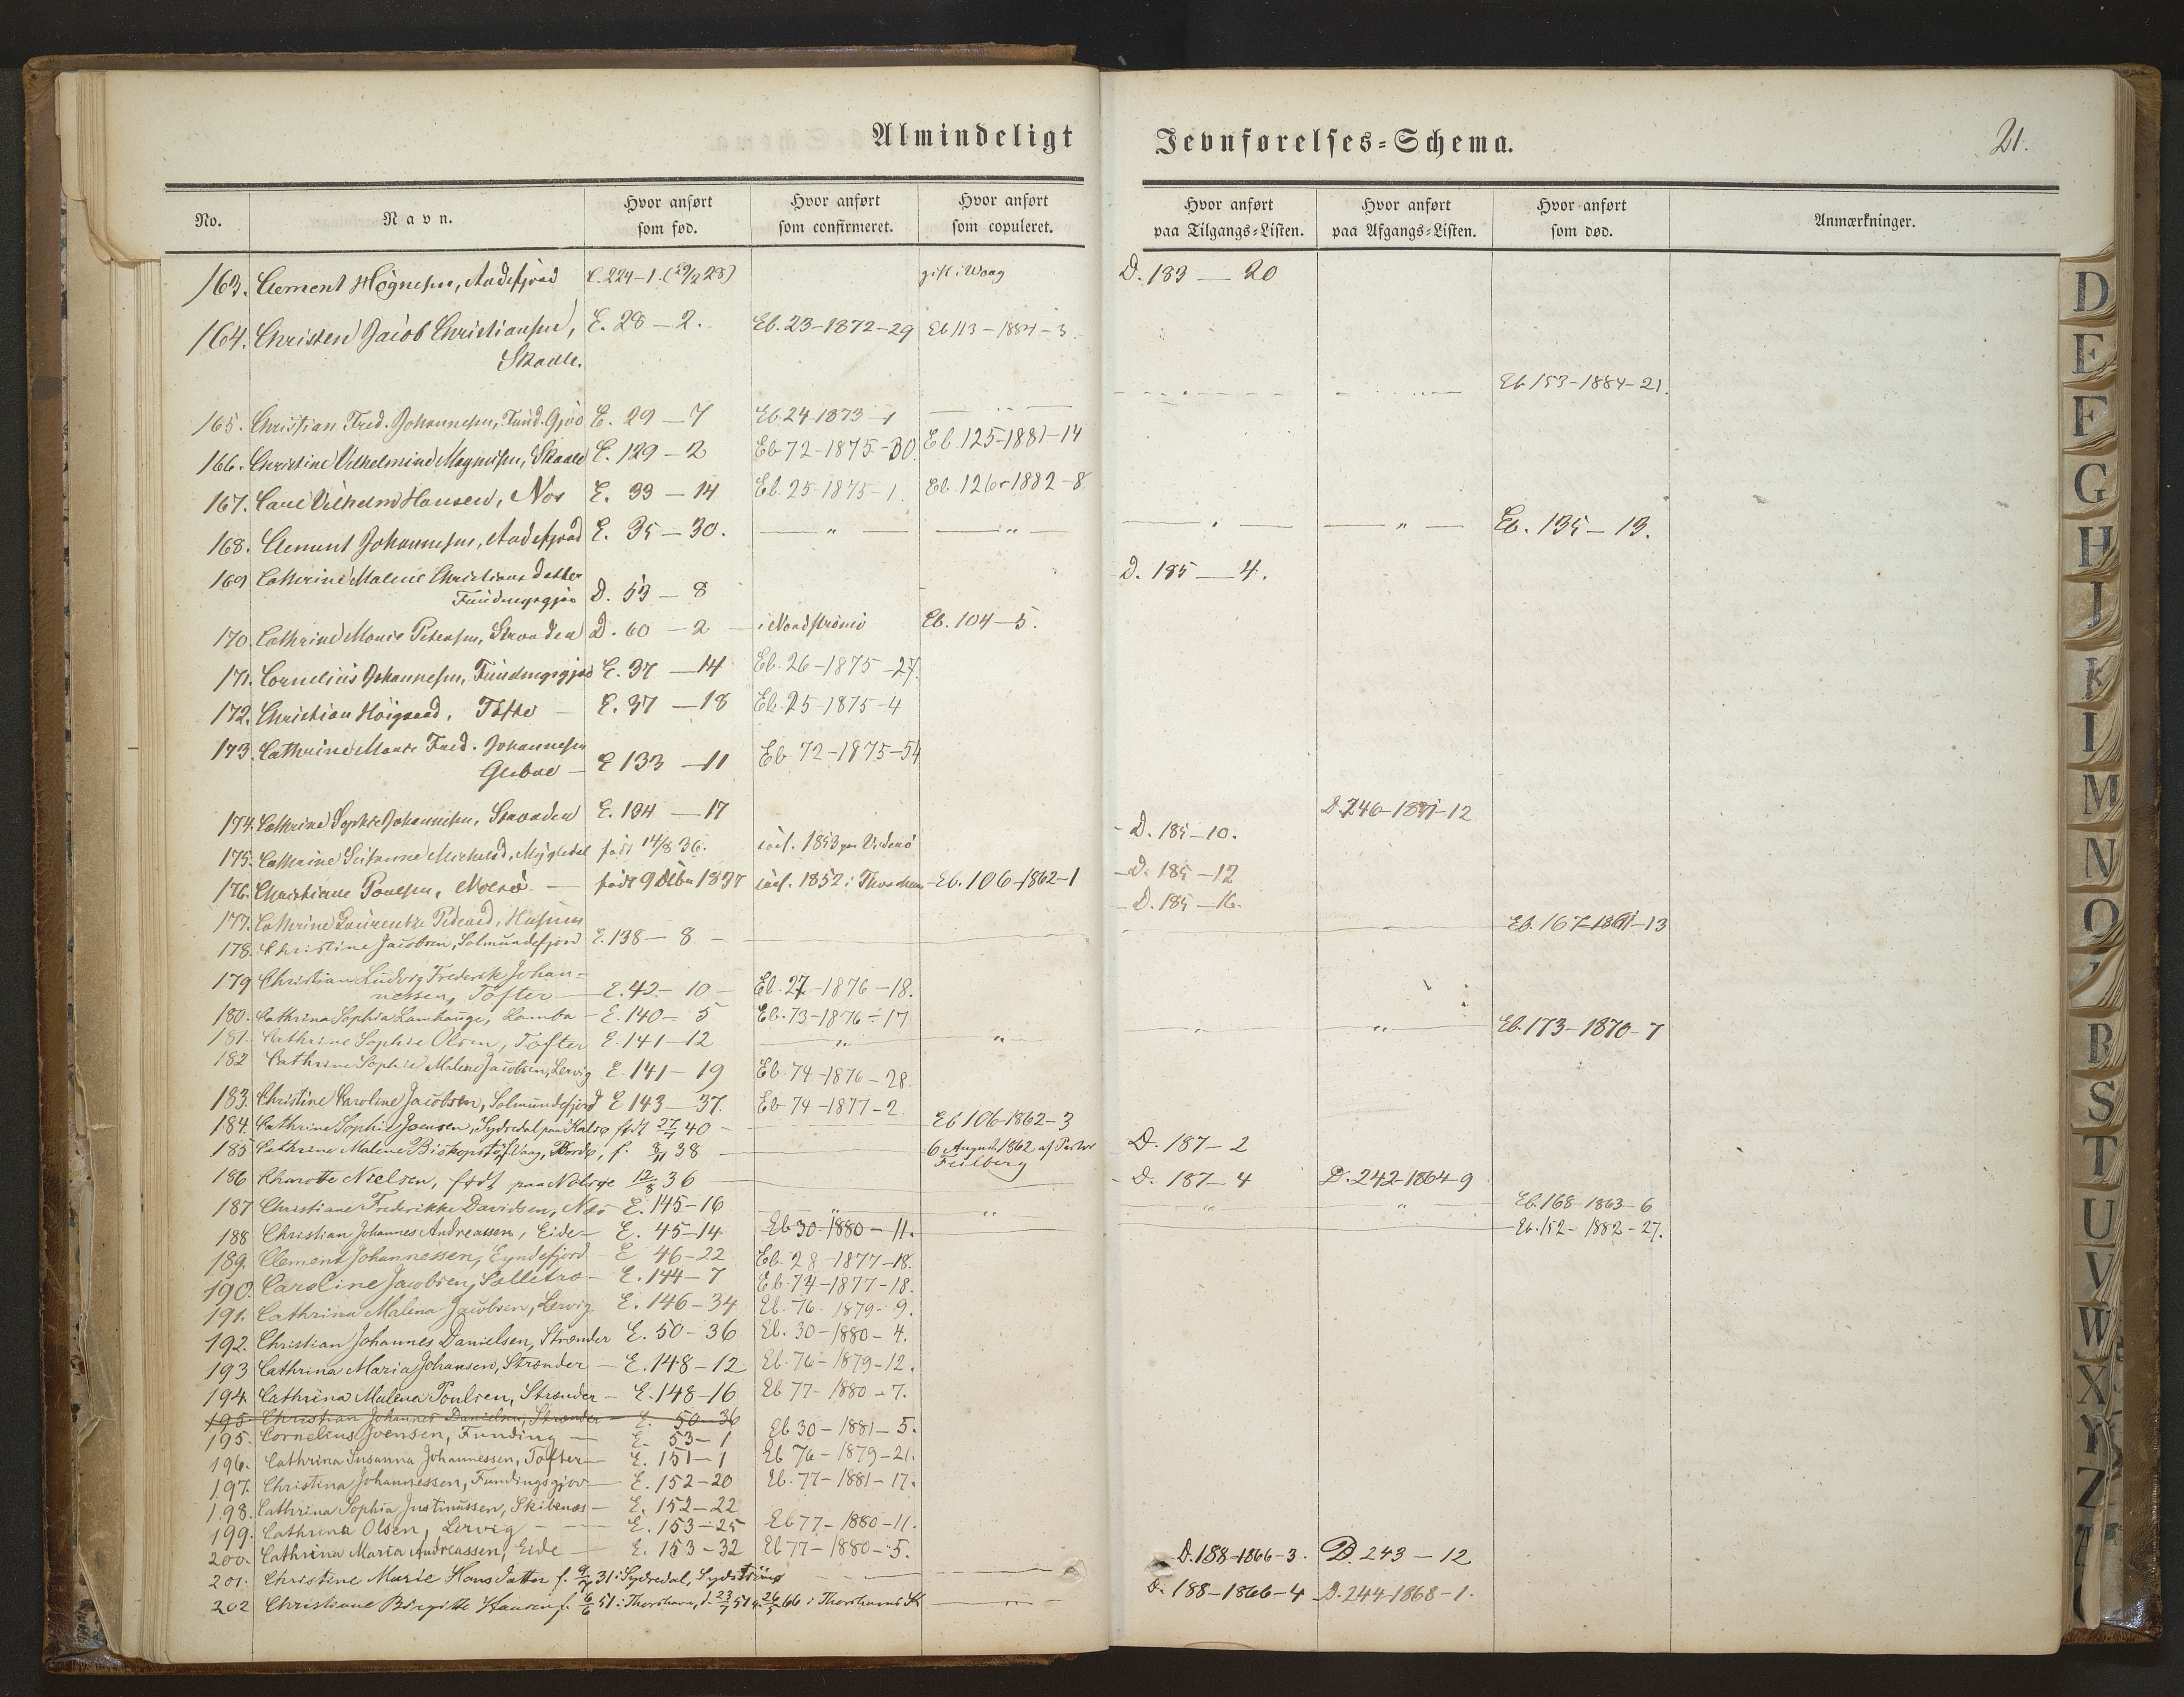 Almindeligt Jevnførelses=Schema. 21.
No. Navn. Hvor anført som fød. Hvor anført som confirmeret. Hvor anført som copuleret. Hvor anført paa Tilgangs=Listen. Hvor anført paa Afgangs=Listen. Hvor anført som død. Anmærkninger.
163. Clement Høgnesen, Andefjord E. 224-1. (29/2 28) gift i Waag D. 183 — 20
164. Christen Jacob Christiansen, E. 28 — 2. Eb. 23-1872-29 Eb 113-1884-3
Skaale.
Eb 153-1884-21.
165. Christian Fred. Johannesen, Fund. Gjov E. 29 — 7 Eb. 24-1873-1
166. Christine Vilhelmine Magnusen, Skaale E. 129 — 2 Eb 72-1875-30. Eb. 125-1881-14
167. Carl Vilhelm Hansen, Nes E. 33 — 14 Eb. 25-1875-1. Eb. 126-1882-8.
168. Clement Johannesen, Andefjord E. 35 — 30. — " — — " — — " — — " — Eb. 135 — 13.
169 Cathrine Malene Christians datter
Fundingsgjov D. 53 — 8 D. 185 — 4.
170. Cathrine Marie Petersen, Strander D. 60 — 2 i Nordstrømø Eb. 104-5.
171. Cornelius Johannesen, Fundingsgjov E. 37 — 14 Eb. 26-1875-27.
172. Christian Høigaard, Tofte — E. 37 — 18 Eb. 25-1875-4
173. Cathrine Marie Fred. Johannesen
Glibre — E 133 — 11 Eb 72-1875-54
174. Cathrine Sophie Johannesen, Strander E. 134 — 17 D. 246-1871-12
175. Cathrine Susanne Michelsd, Mygledal født 14/8 36. conf. 1853 paa Viderø - D. 185-10.
176. Christiane Poulsen, Molerø — født 9 Octbr 1837 conf. 1852 i Thorshavn - Eb. 106-1862-1 - D. 185-12
177. Cathrine Laurentze Pedersd, Husum - D. 185-16.
178. Christine Jacobsen, Solmundefjord E. 138 — 8 — Eb. 167-1861-13
179 Christian Ludvig Frederik Johan=
nessen, Tofter — E. 42 — 10 — Eb. 27-1876-18.
180. Cathrina Sophia Lamhauge, Lamba - E. 140 — 5 Eb. 73-1876-17
181. Cathrine Sophie Olsen, Tofter E. 141-12 — " — — " — — " — — " — Eb. 173-1870-7
182 Cathrine Sophie Malene Jacobsen, Lervig E. 141-19 Eb. 74-1876-28.
183. Christine Caroline Jacobsen, Solmundefjord E 143 — 37. Eb 74-1877-2.
184. Cathrine Sophie Joensen, Sydredal paa Kalsø født 27/7 40 — Eb 106-1862-3
185 Cathrine Malene Biskopstø f. Vaag, Bordø, f. 8/11 38 — 6 August 1862 af Pastor Feilberg D. 187-2
186 Charlotte Nielsen, født paa Nolsøe 12/8 36 — D. 187-4 D. 242-1864-9
187 Christiane Frederikke Davidsen, Nes E. 145-16 — " — — " — — " — — " — Eb. 168-1863-6
188 Christian Johannes Andreassen, Eide - E. 45-14 Eb 30-1880-11. Eb. 152-1882-27.
189. Clement Johannessen, Eyndefjord - E 46-22 Eb. 28-1877-18.
190. Caroline Jacobsen, Selletræ - E. 144-7 Eb. 74-1877-18.
191. Cathrina Malena Jacobsen, Lervig E. 146-34 Eb. 76-1879-9.
192. Christian Johannes Danielsen, Strænder E. 50-36 Eb. 30-1880-4.
193 Cathrina Maria Johansen, Strænder — E. 148-12 Eb. 76-1879-12.
194. Cathrina Malena Poulsen, Strænder - E. 148-16 Eb 77-1880-7.
195 Christian Johannes Danielsen, Strænder E. 50-36
195. Cornelius Joensen, Funding — E. 53-1 Eb 30-1881-5.
196. Cathrina Susanna Johannessen, Tofter — E. 151-1 Eb 76-1879-21.
197. Christina Johannessen, Fundingsgjov — E. 152-20 Eb. 77-1881-17.
198. Cathrina Sophia Justinussen, Skibenæs — E. 152-22
199. Cathrina Olsen, Lervig — E. 153-25 Eb 77-1880-11.
200. Cathrina Maria Andreassen, Eide — E. 153-32 Eb 77-1880-5.
201. Christine Marie Hans datter f. 9/7 31 i Sydredal, Syds Strømø D. 188-1866-3. D. 243-12
202 Christiane Birgitte Hansen f. 6/6 51 i Thorshavn, d. 23/7 51 26/5 66 i Thorshavns K — " — D. 188-1866-4 D. 244-1868-1.
D
E
F
G
H
J
K
L
M
N
O
R
S
T
U
V
W
X
Y
Z